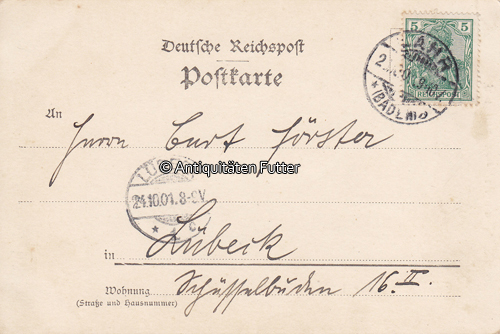 Deutsche Reichspost
Postkarte
5 5
REICHSPOST
LAHR
* (BADEN)
An
Herrn Curt Förster
© Antiquitäten Futter
24.10.01. 8-9V.
in Lübeck
Wohnung Schüsselbuden 16 II.
(Straße und Hausnummer)